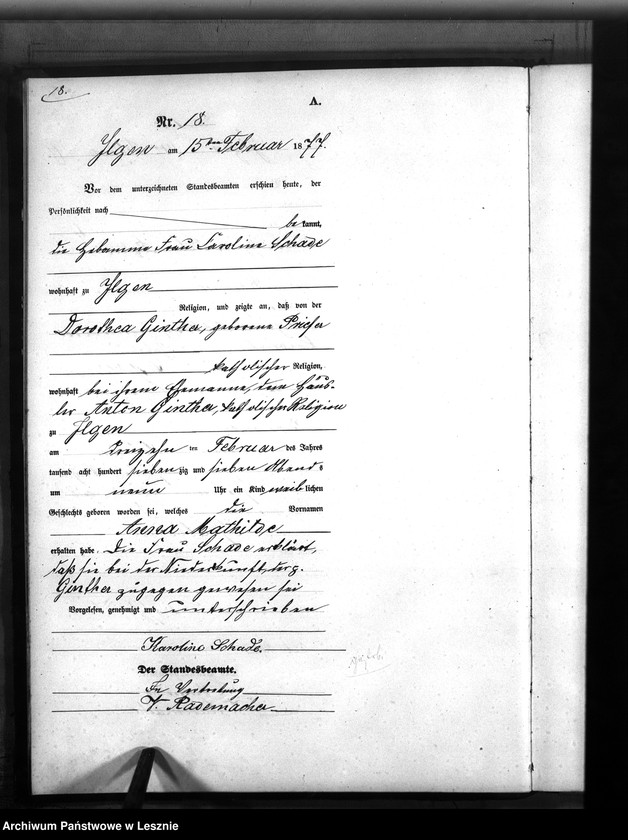 18.
A.
Nr. 18.
Ilgen am 15ten Februar 1877.
Vor dem unterzeichneten Standesbeamten erschien heute, der
Persönlichkeit nach
be kannt,
die Hebamme Frau Caroline Schade
wohnhaft zu Ilgen
Religion, und zeigte an, daß von der
Dorothea Ginther, geborene
katholischer Religion,
wohnhaft bei ihrem Ehemanne, dem Häus-
ler Anton Ginther, katholischer Religion
zu Ilgen
am ten Februar des Jahres
tausend acht hundert siebenzig und sieben Abends
um neun Uhr ein Kind weiblichen
Geschlechts geboren worden sei, welches die Vornamen
Anna Mathilde
erhalten habe. Die Frau Schade erklärt,
daß sie bei der Niederkunft der p.
Ginther zugegen gewesen sei
Vorgelesen, genehmigt und unterschrieben
Karoline Schade.
Der Standesbeamte.
In Vertretung
V. Rademacher
Archiwum Państwowe w Lesznie